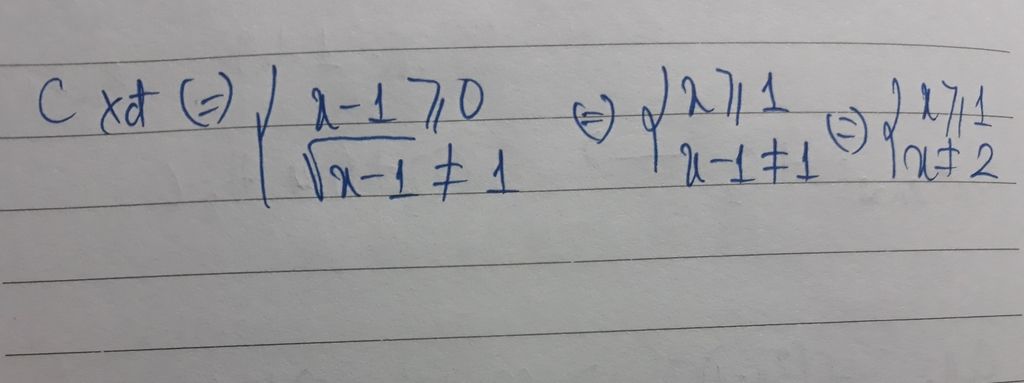 C xđ (=) { x-1 ⩾ 0 (=) { x ⩾ 1 (=) { x ⩾ 1
√x-1 ≠ 1 x-1 ≠ 1 x ≠ 2